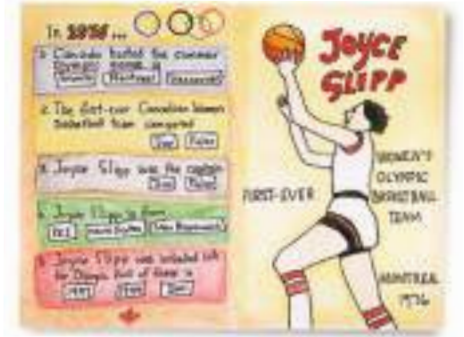 In 1976...
1. Canada hosted the summer
Olympic games in
Toronto Montreal Vancouver
2. The first-ever Canadian Women
basketball team competed
True False
3. Joyce Slipp was the captain
True False
4. Joyce Slipp is from
P.E.I. Nova Scotia New Brunswick
5. Joyce Slipp was
for Olympic Hall of Fame in
JOYCE
SLIPP
FIRST-EVER
WOMEN'S
OLYMPIC
BASKETBALL
TEAM
MONTREAL
1976